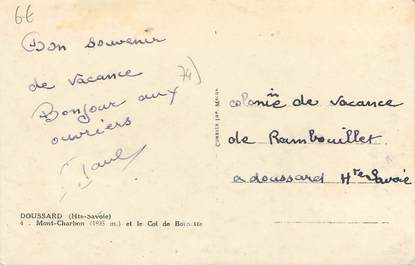 6€
Bon souvenir
de vacance
74)
Bonjour aux
ouvriers
Paul
colonie de vacance
de Rambouillet
a doussard Hte Savoie
DOUSSARD (Hte-Savoie)
4 - Mont-Charbon (1936 m.) et le Col de Bornette